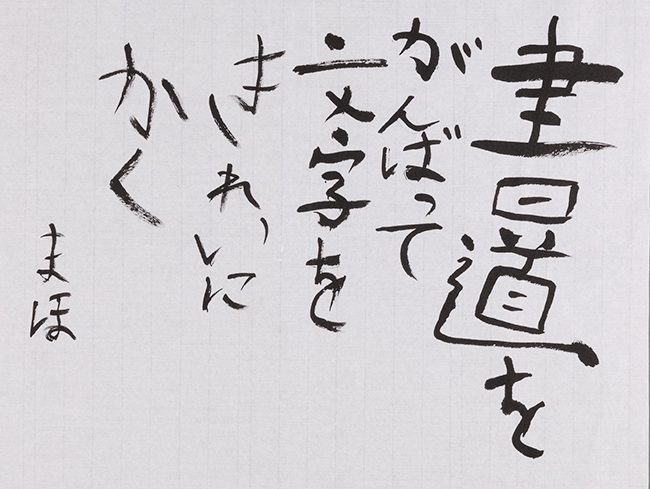 書道を
がんばって
文字を
きれいに
かく
まほ